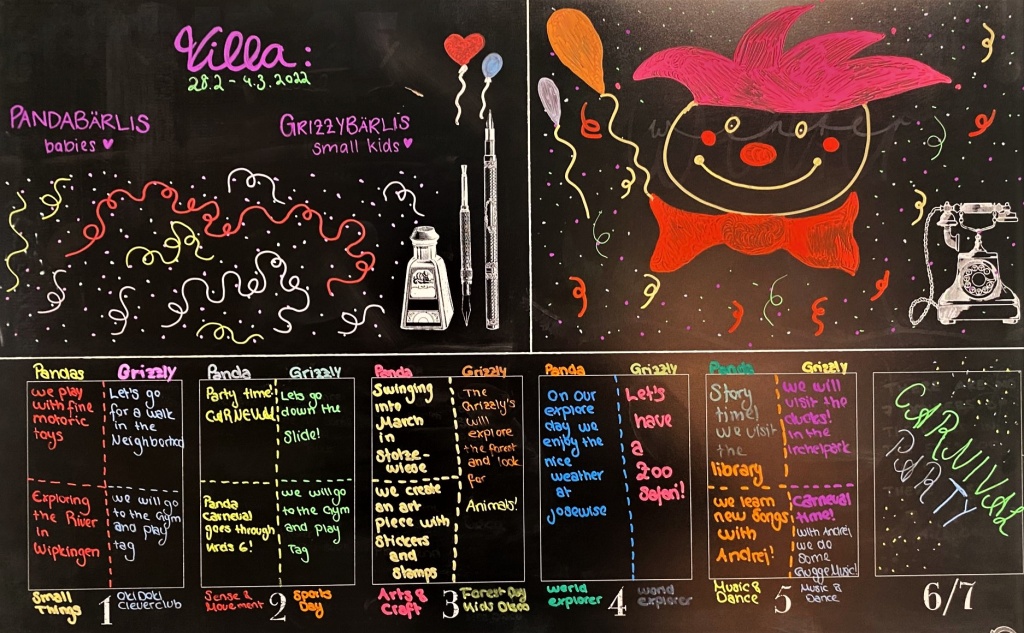 Villa:
28.2 - 4.3.2022
PANDABÄRLIS
babies
GRIZZYBÄRLIS
small kids
winter
Pandas
we play
with fine
motoric
toys
Exploring
the River
in
Wipkingen
Small
Things
Grizzly
Let's go
for a walk
in the
Neighborhood
we will go
to the Gym
and play
tag
1
OkiDoki
Cleverclub
Panda
Party time!
CARNEVAL!
Panda
carneval
goes through
Kids 6!
Sense &
Movement
Grizzly
Lets go
down the
Slide!
we will go
to the Gym
and play
Tag
2
Sports
Day
Panda
Swinging
into
March
in
Stolze-
wiese
we create
an art
piece with
stickers
and
stamps
Arts &
Craft
Grizzly
The
Grizzly's
will
explore
the forest
and look
for
Animals!
3
Forest Day
Kids
Panda
On our
explore
day we
enjoy the
nice
weather
at
Josewise
world
explorer
Grizzly
Let's
have
a
Zoo
Safari!
4
world
explorer
Panda
Story
time!
we visit
the
library
we learn
new songs
with
Andrej!
Music &
Dance
Grizzly
we will
visit the
ducks!
in the
Irchelpark
Carneval
time!
with Andrej
we do
some
Gugge Music!
5
Music &
Dance
CARNIVAL
PARTY
6/7